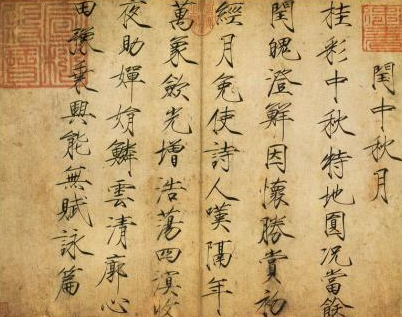 閏中秋月
桂彩中秋特地圓况當餘
閏魄澄鮮因懷勝賞初
經月免使詩人嘆隔年
萬象斂光增浩蕩四溟收
夜助嬋娟鱗雲清廓心
田豫乘興能無賦詠篇